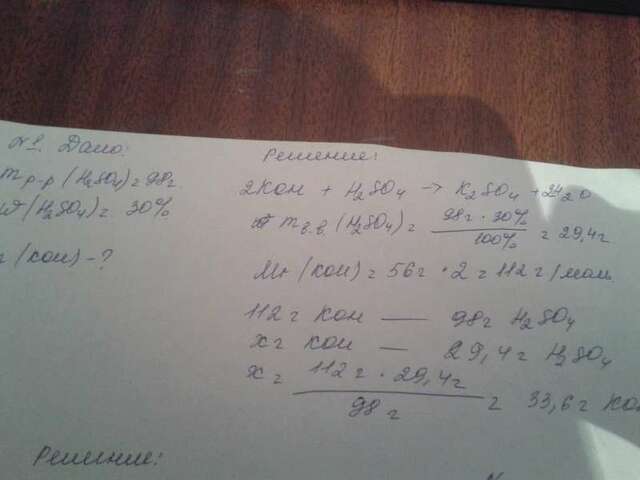 №1. Дано:
m р-р (H₂SO₄) = 98г.
ω (H₂SO₄) = 30%
(KOH) - ?
Решение:
2KOH + H₂SO₄ → K₂SO₄ + 2H₂O
m в.в (H₂SO₄) = 98г · 30% / 100% = 29,4г
Mr (KOH) = 56г · 2 = 112 г/моль.
112г KOH — 98г H₂SO₄
xг KOH — 29,4г H₂SO₄
x = 112г · 29,4г / 98г = 33,6г KOH
Решение: